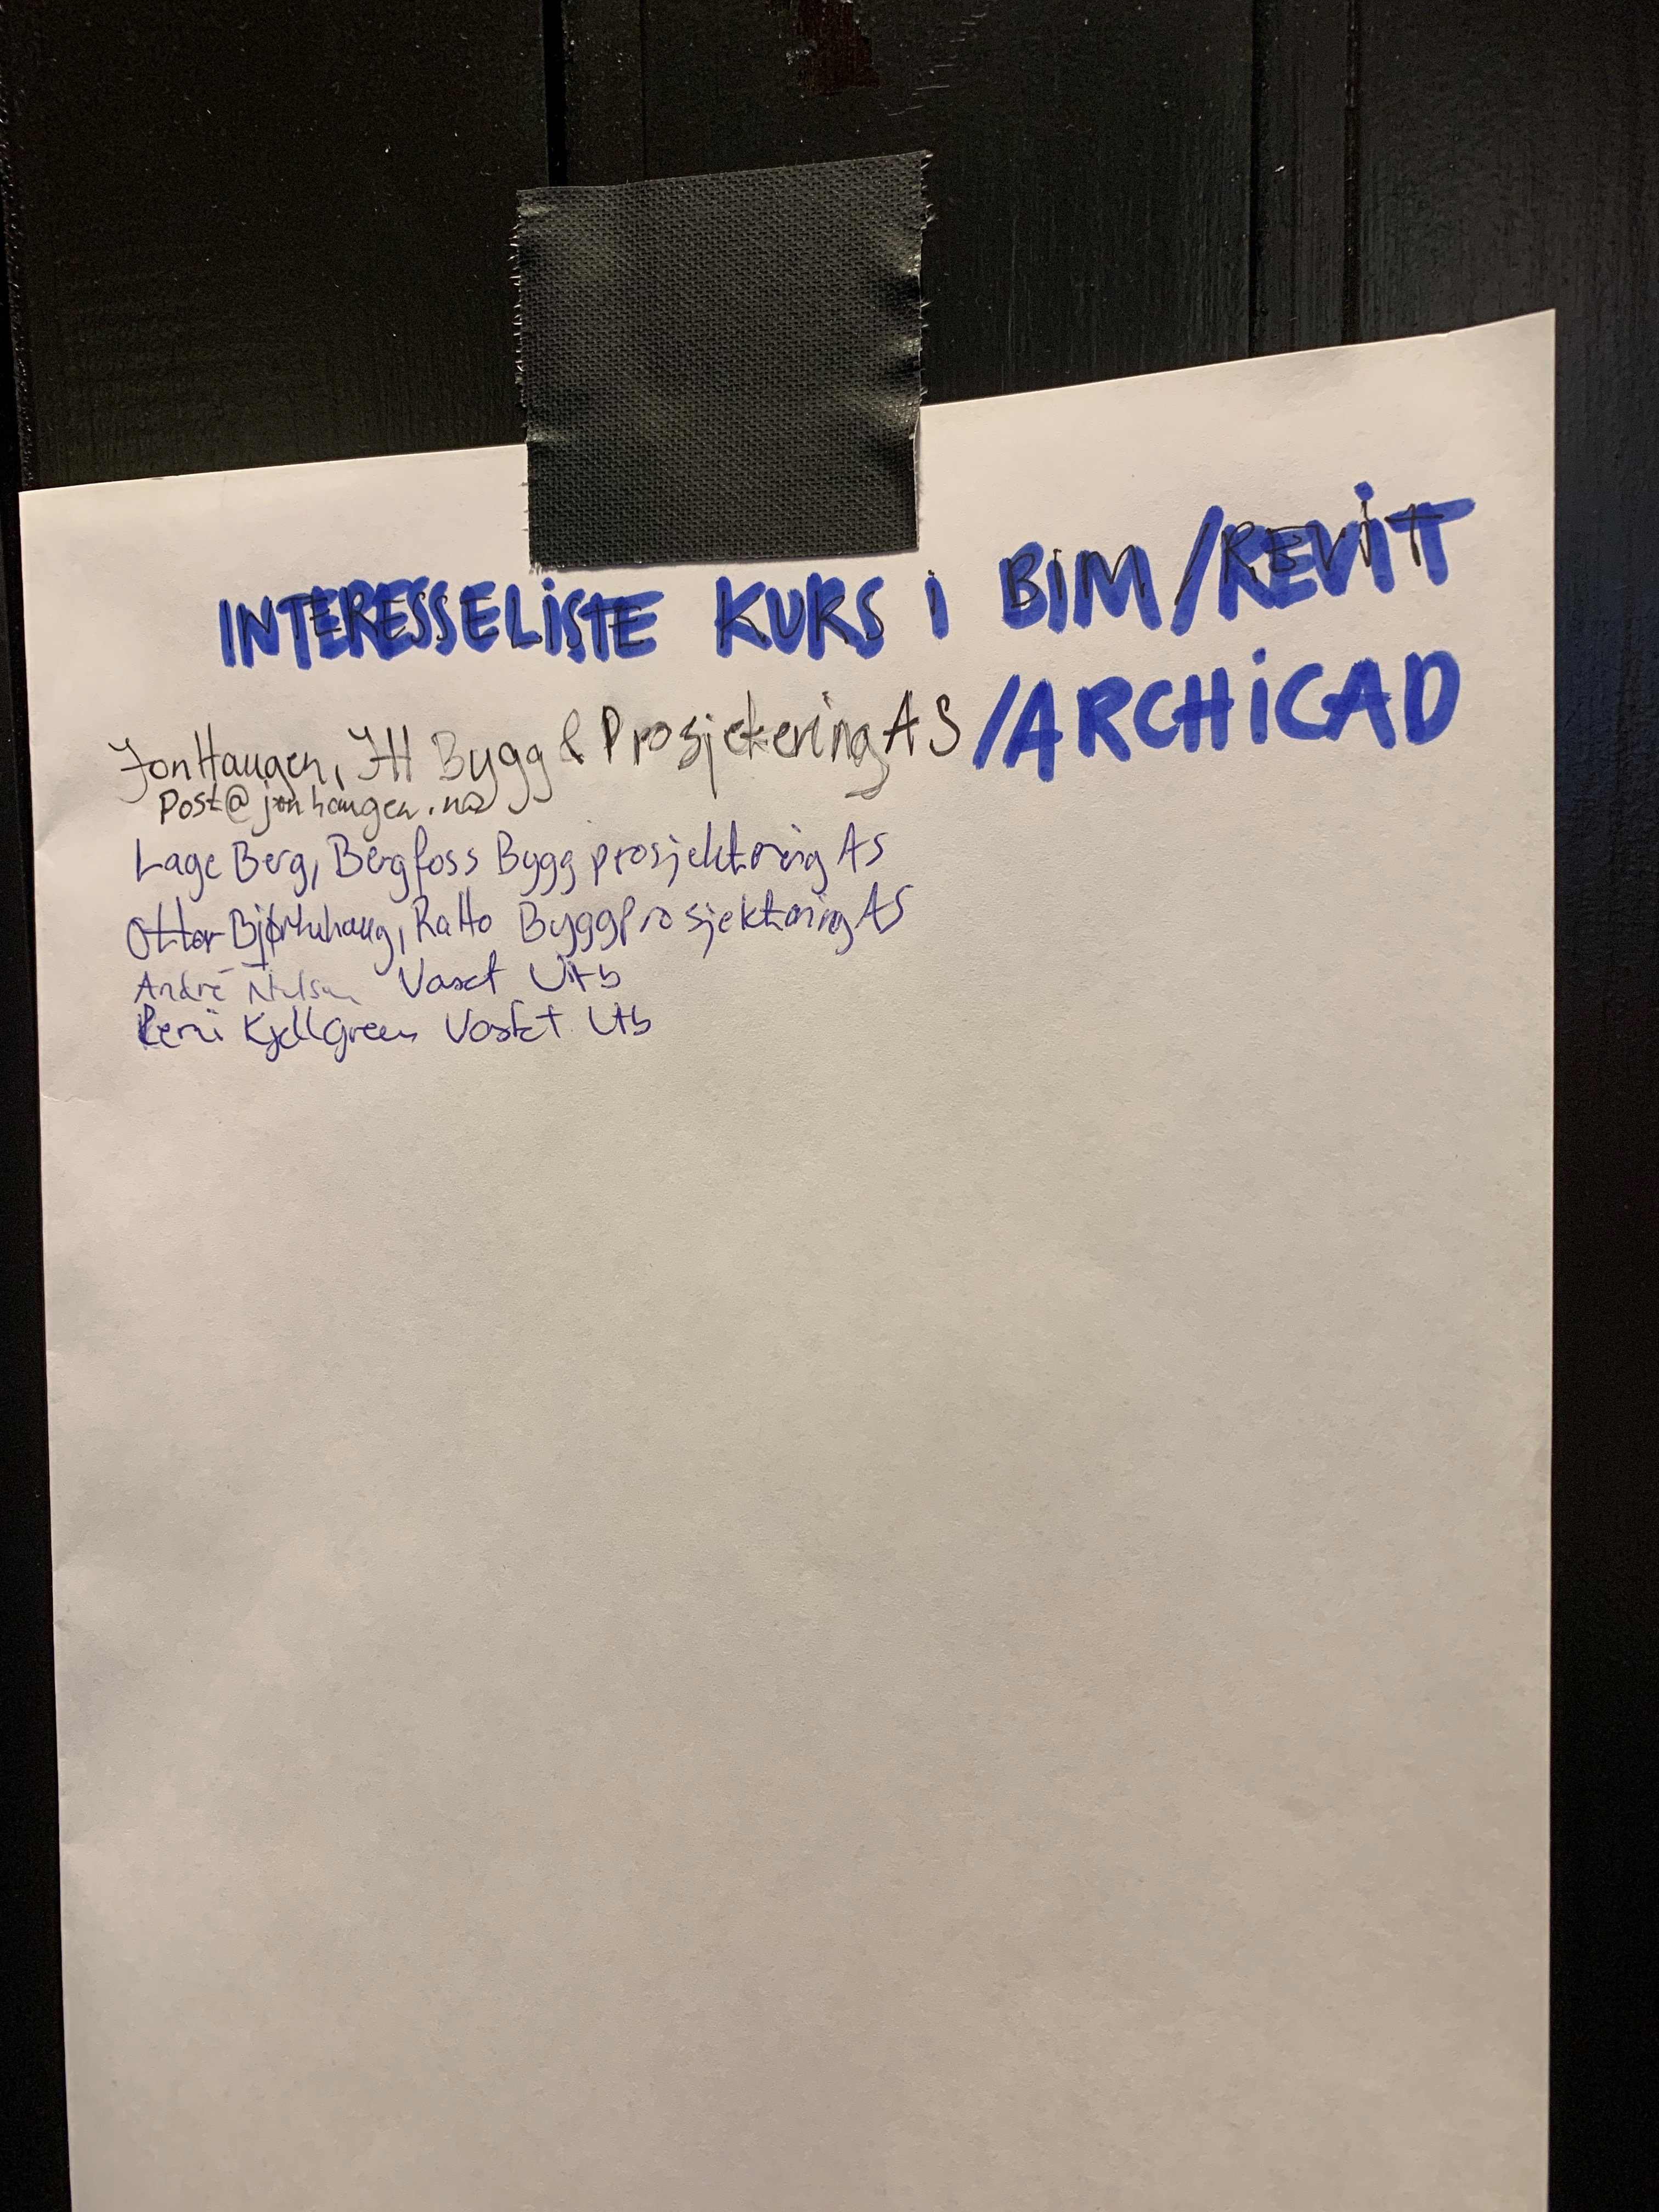 INTERESSELISTE KURS i BiM/REViT
/ARCHiCAD
Jon Haugen, JH Bygg & Prosjektering AS
Post@jonhaugen.no
Lage Berg, Bergfoss Bygg prosjektering AS
Ottar Bjørnhaug, Ratio Byggprosjektering AS
André Utb
Remi Kjellgreen Utb